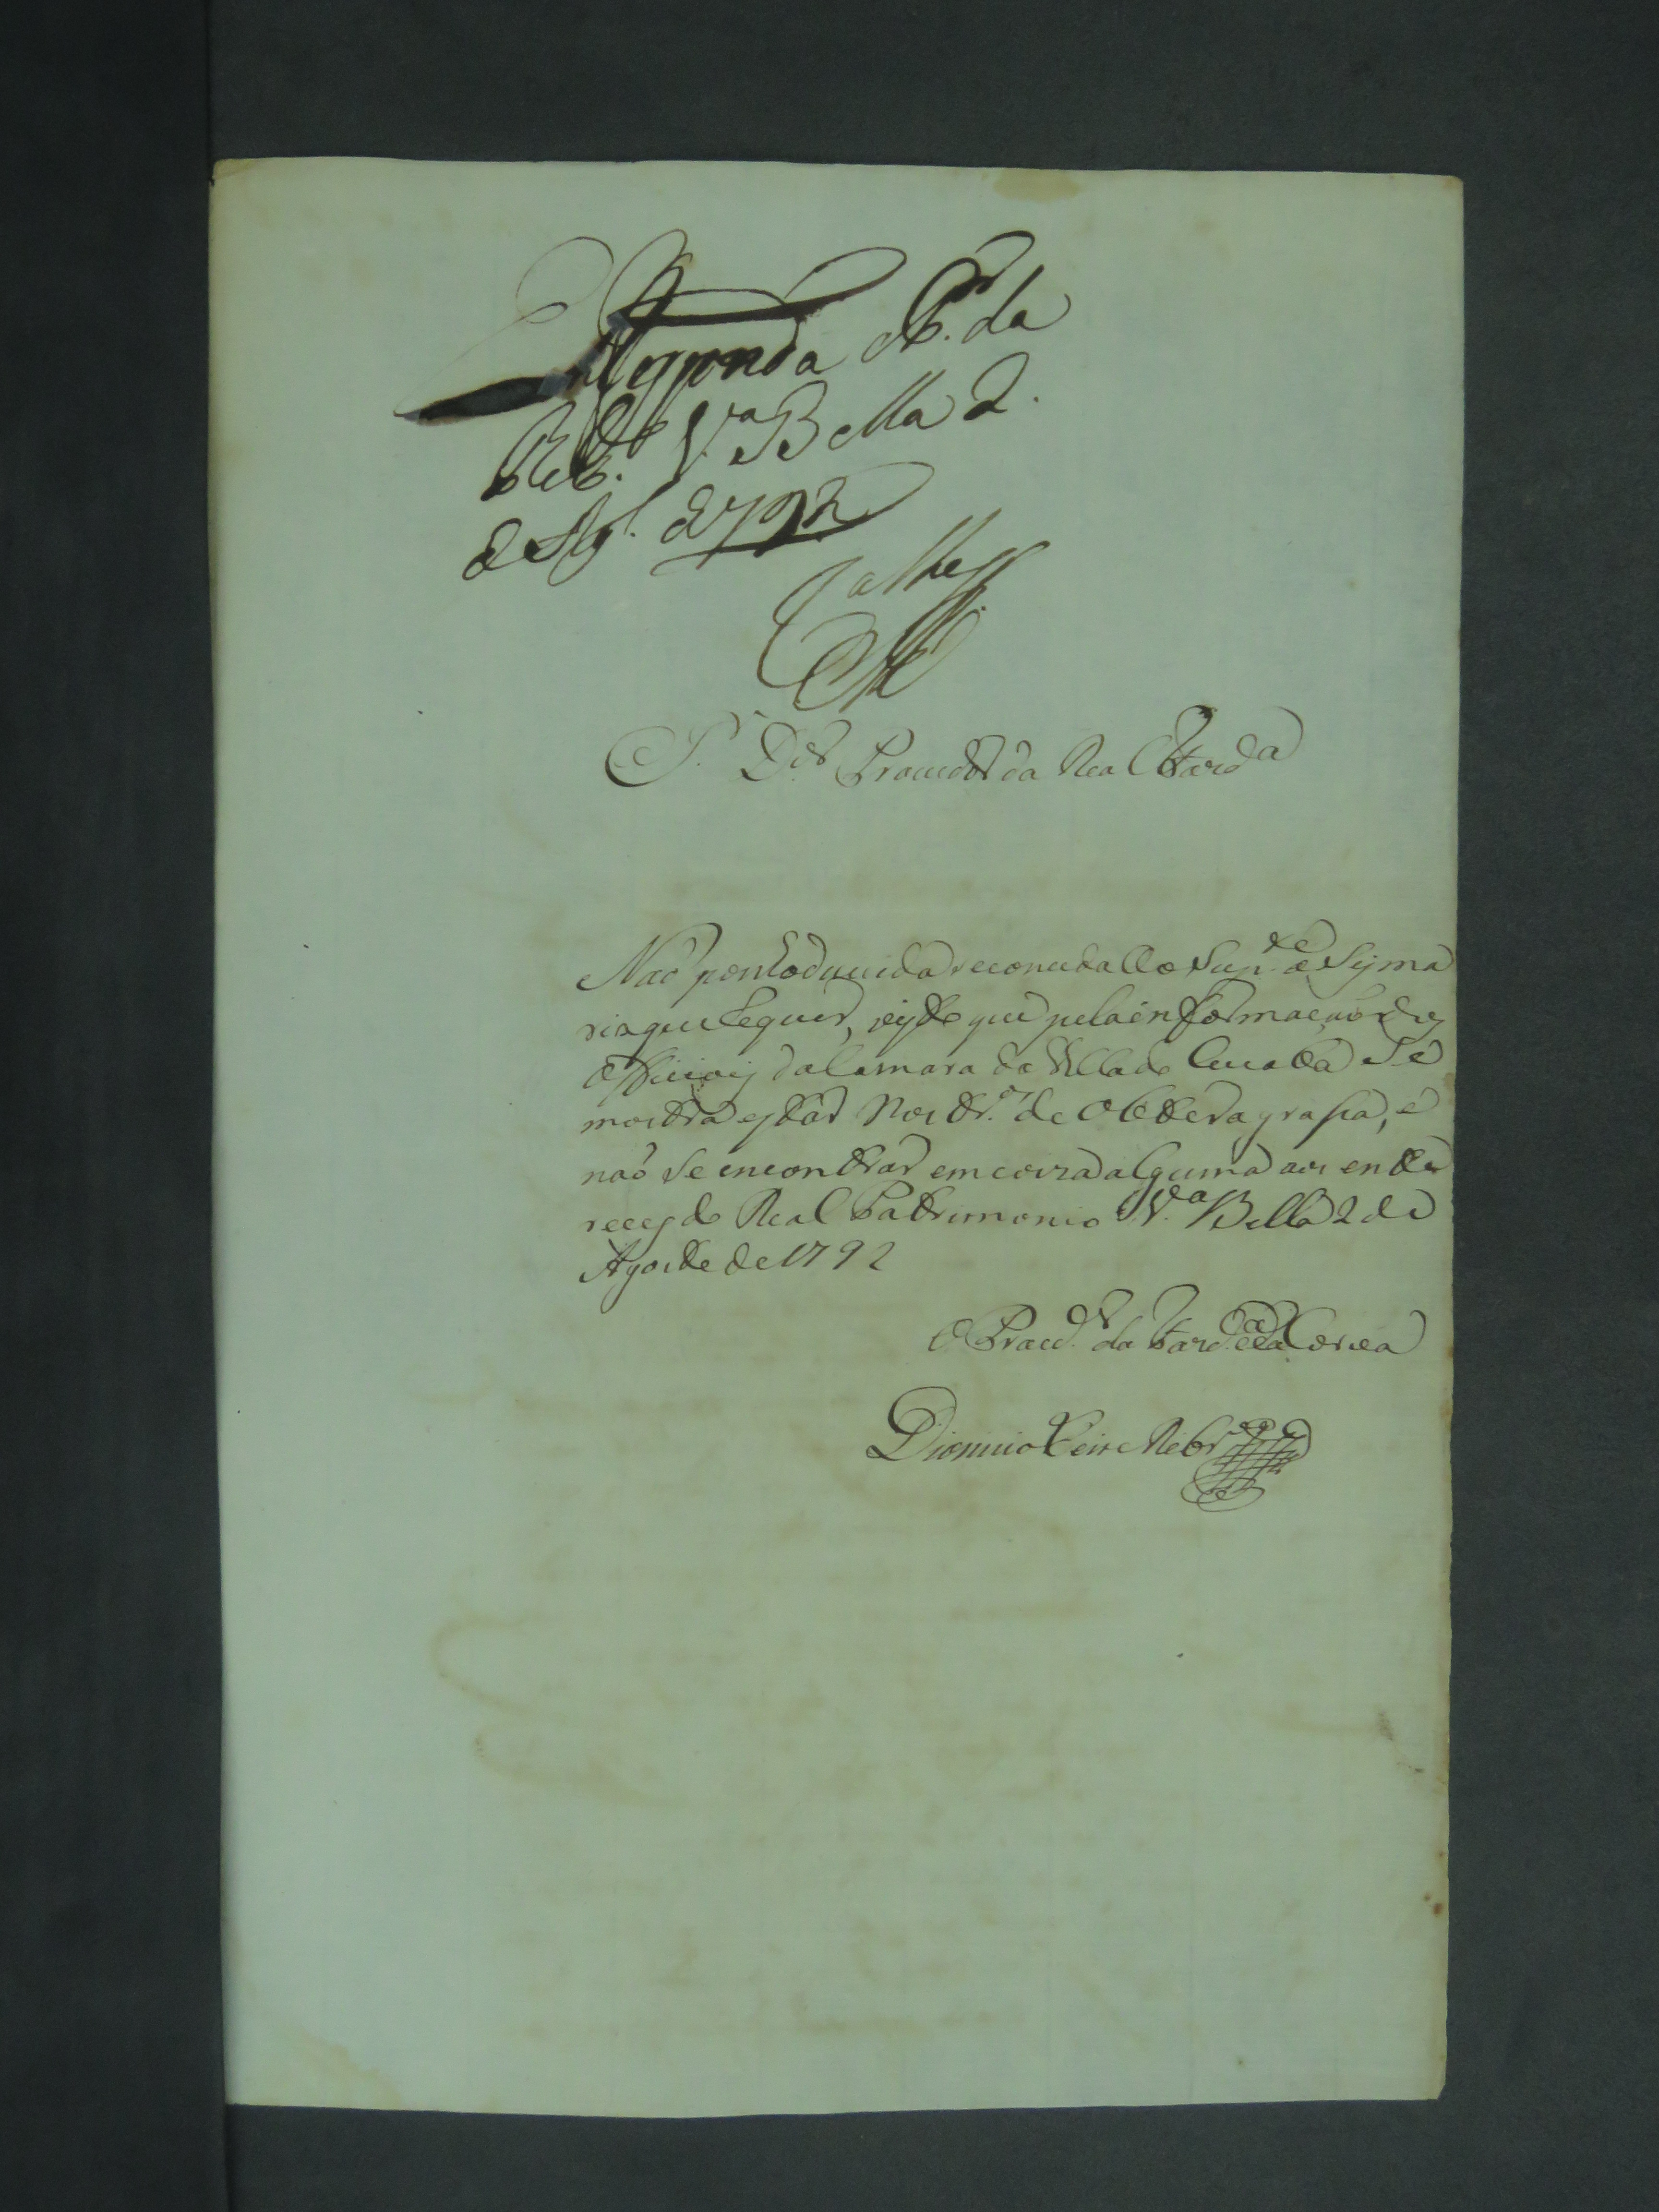 Responda o Pr. da
V.a Bella 2.
de Ag.to de 792
S.r D.or Procurador da Real Fazd.a
Naõ ponho duvida se conceda ao Sup.te a Sysma
ria que requer, visto que pela informaçaõ dos
Officiaes da Camara da Villa do Cuiabá Se
mostra estar nos tr.os de obter a grasia, e
naõ Se encontrar em coiza alguma aos ente
reces do Real Patrimonio V.a Bella 2 de
Agosto de 1792
O Procd.or da Fazd.a e da Coroa
Dionizio Leite Rebr.o